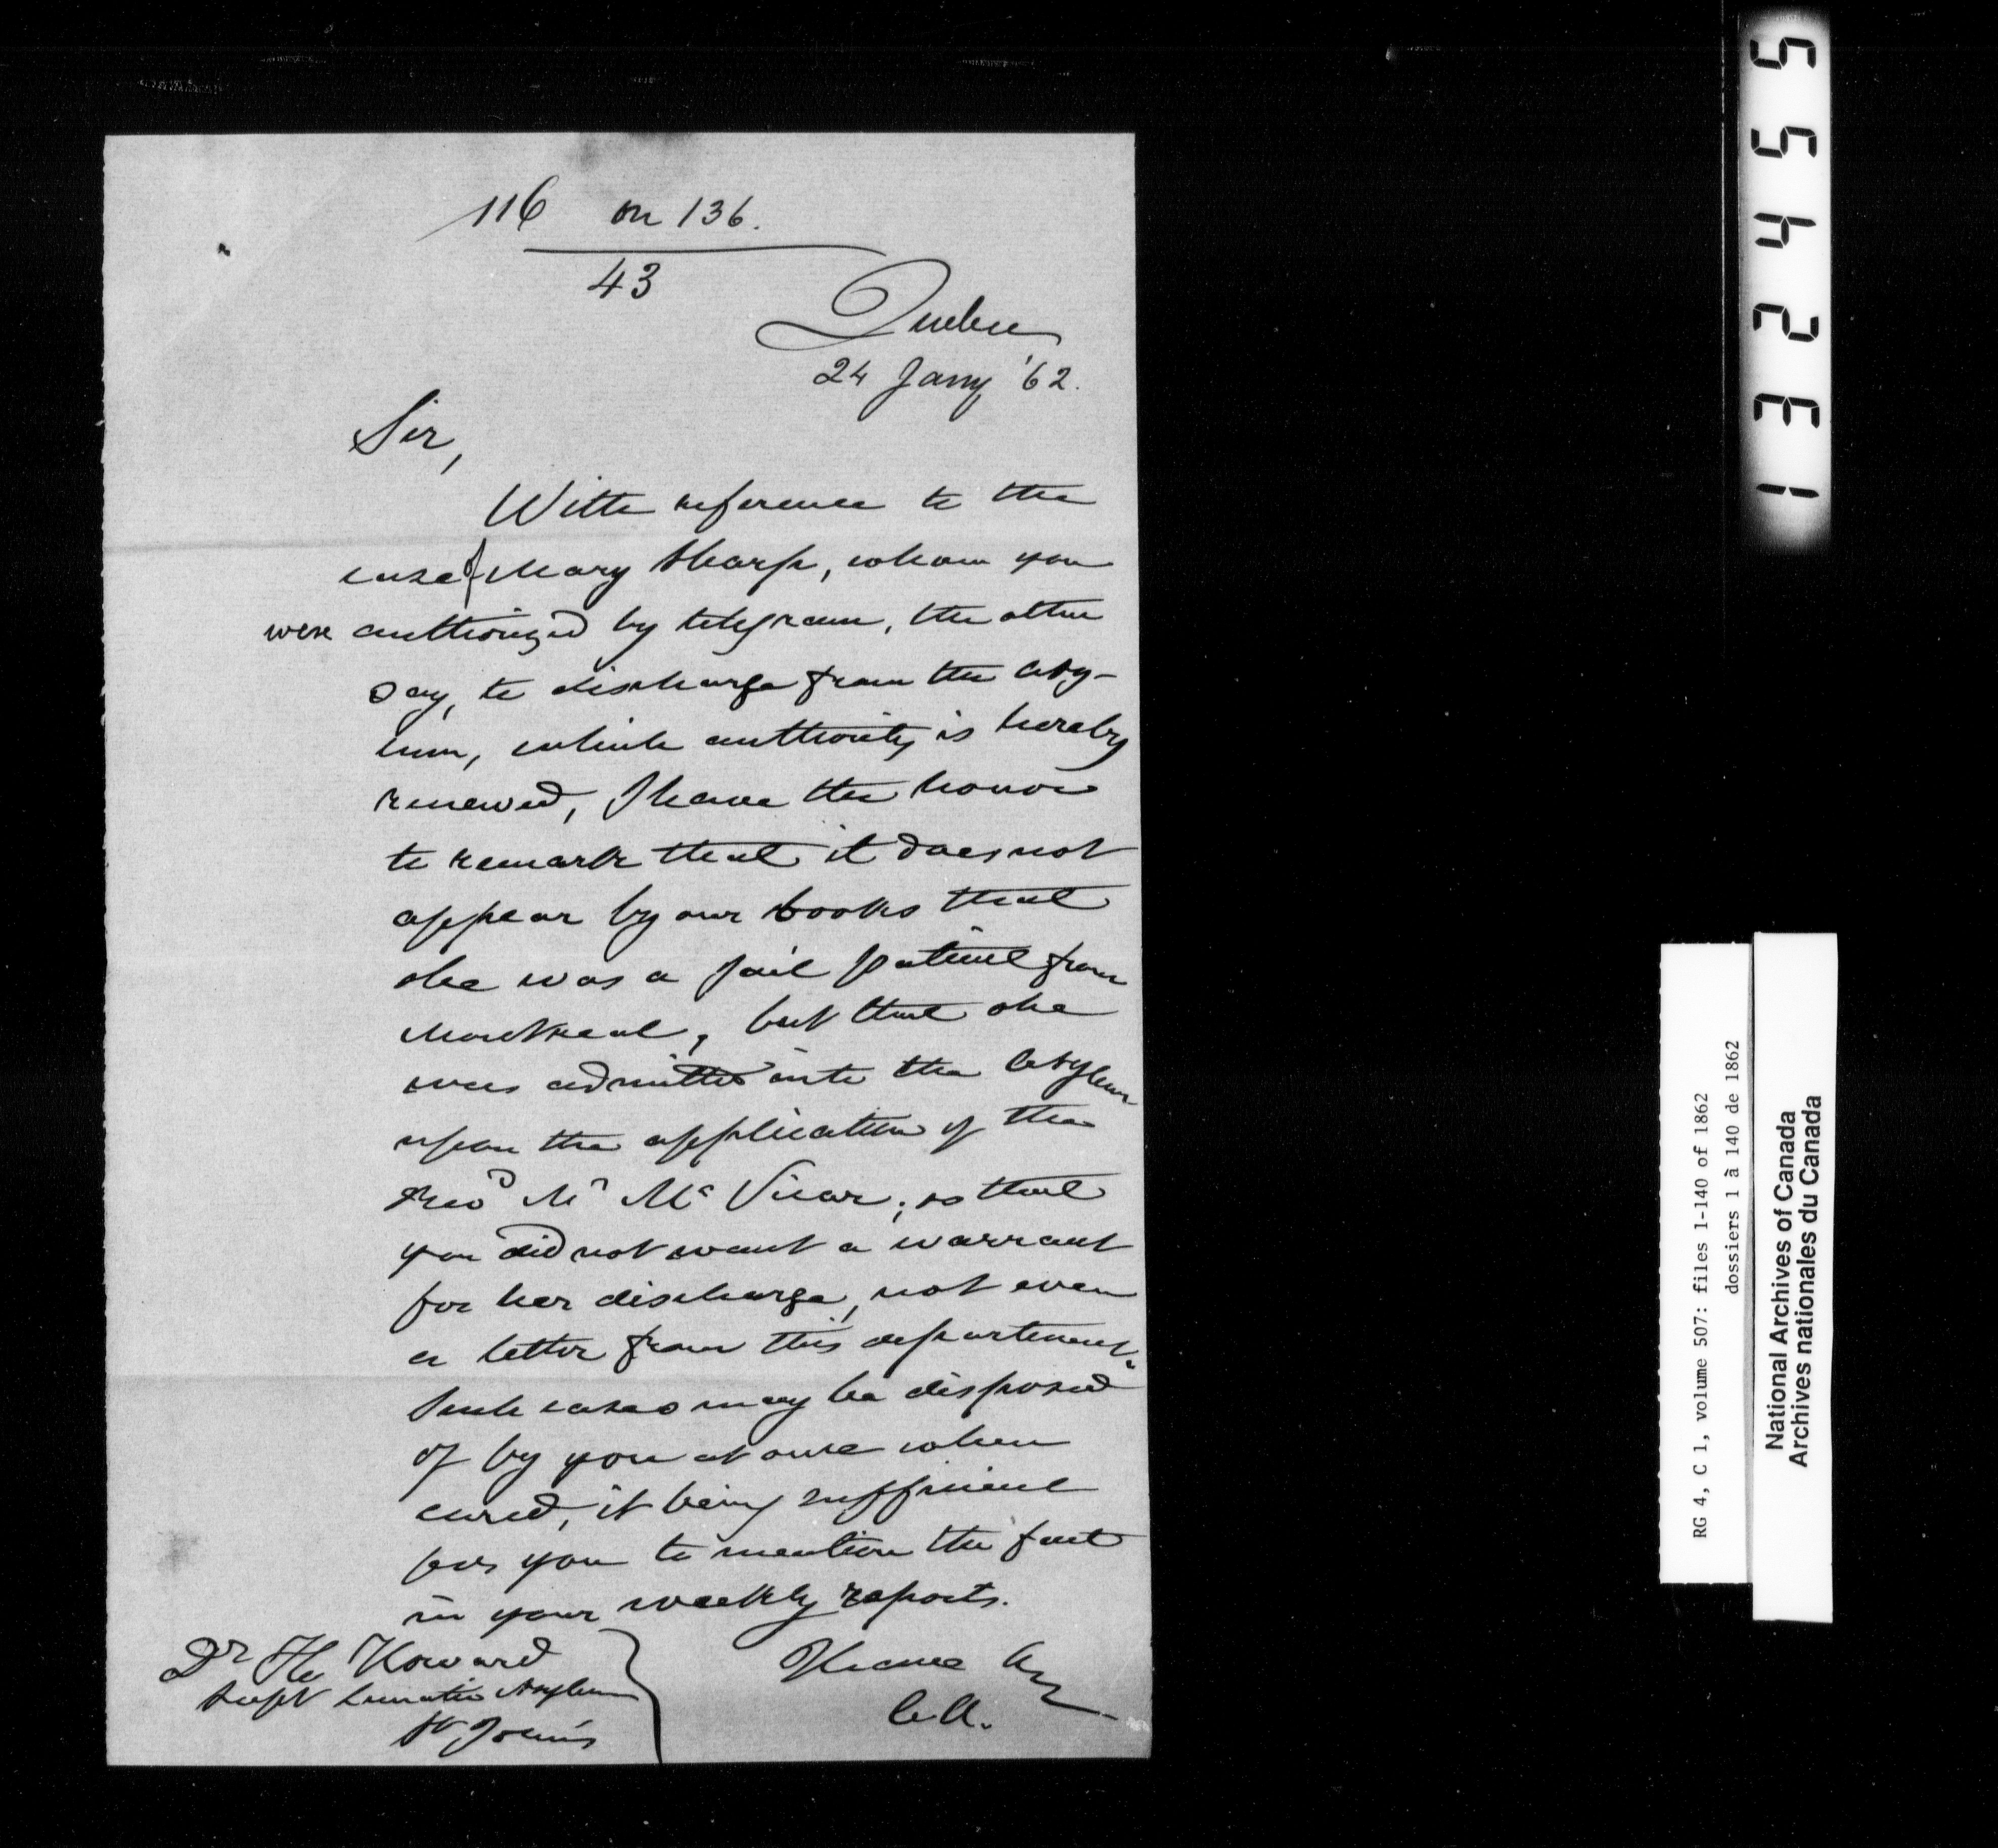 116 on 136.
43
Quebec
24 Jany '62.
Sir,
With reference to the
case of Mary Sharp, whom you
were authorized by telegram, the other
day, to discharge from the Asy-
lum, which authority is hereby
renewed, I have the honor
to remark that it does not
appear by our books that
she was a jail patient from
Montreal, but that she
was admitted into the Asylum
upon the application of the
Revd Mr Mc Vicar; so that
you did not want a warrant
for her discharge, not even
a letter from this department.
Such cases may be disposed
of by you at once when
cured, it being sufficient
for you to mention the fact
in your weekly reports.
Dr Hy Howard
Supt Lunatic Asylum
St John's
I have &c
C.A.
132455
RG 4, C 1, volume 507: files 1-140 of 1862
dossiers 1 à 140 de 1862
National Archives of Canada
Archives nationales du Canada